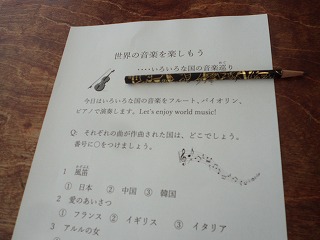 世界の音楽を楽しもう
････いろいろな国の音楽巡り
今日はいろいろな国の音楽をフルート、バイオリン、
ピアノで演奏します。Let's enjoy world music!
Q: それぞれの曲が作曲された国は、どこでしょう。
番号に○をつけましょう。
1 風笛
① 日本 ② 中国 ③ 韓国
2 愛のあいさつ
① フランス ② イギリス ③ イタリア
3 アルルの女